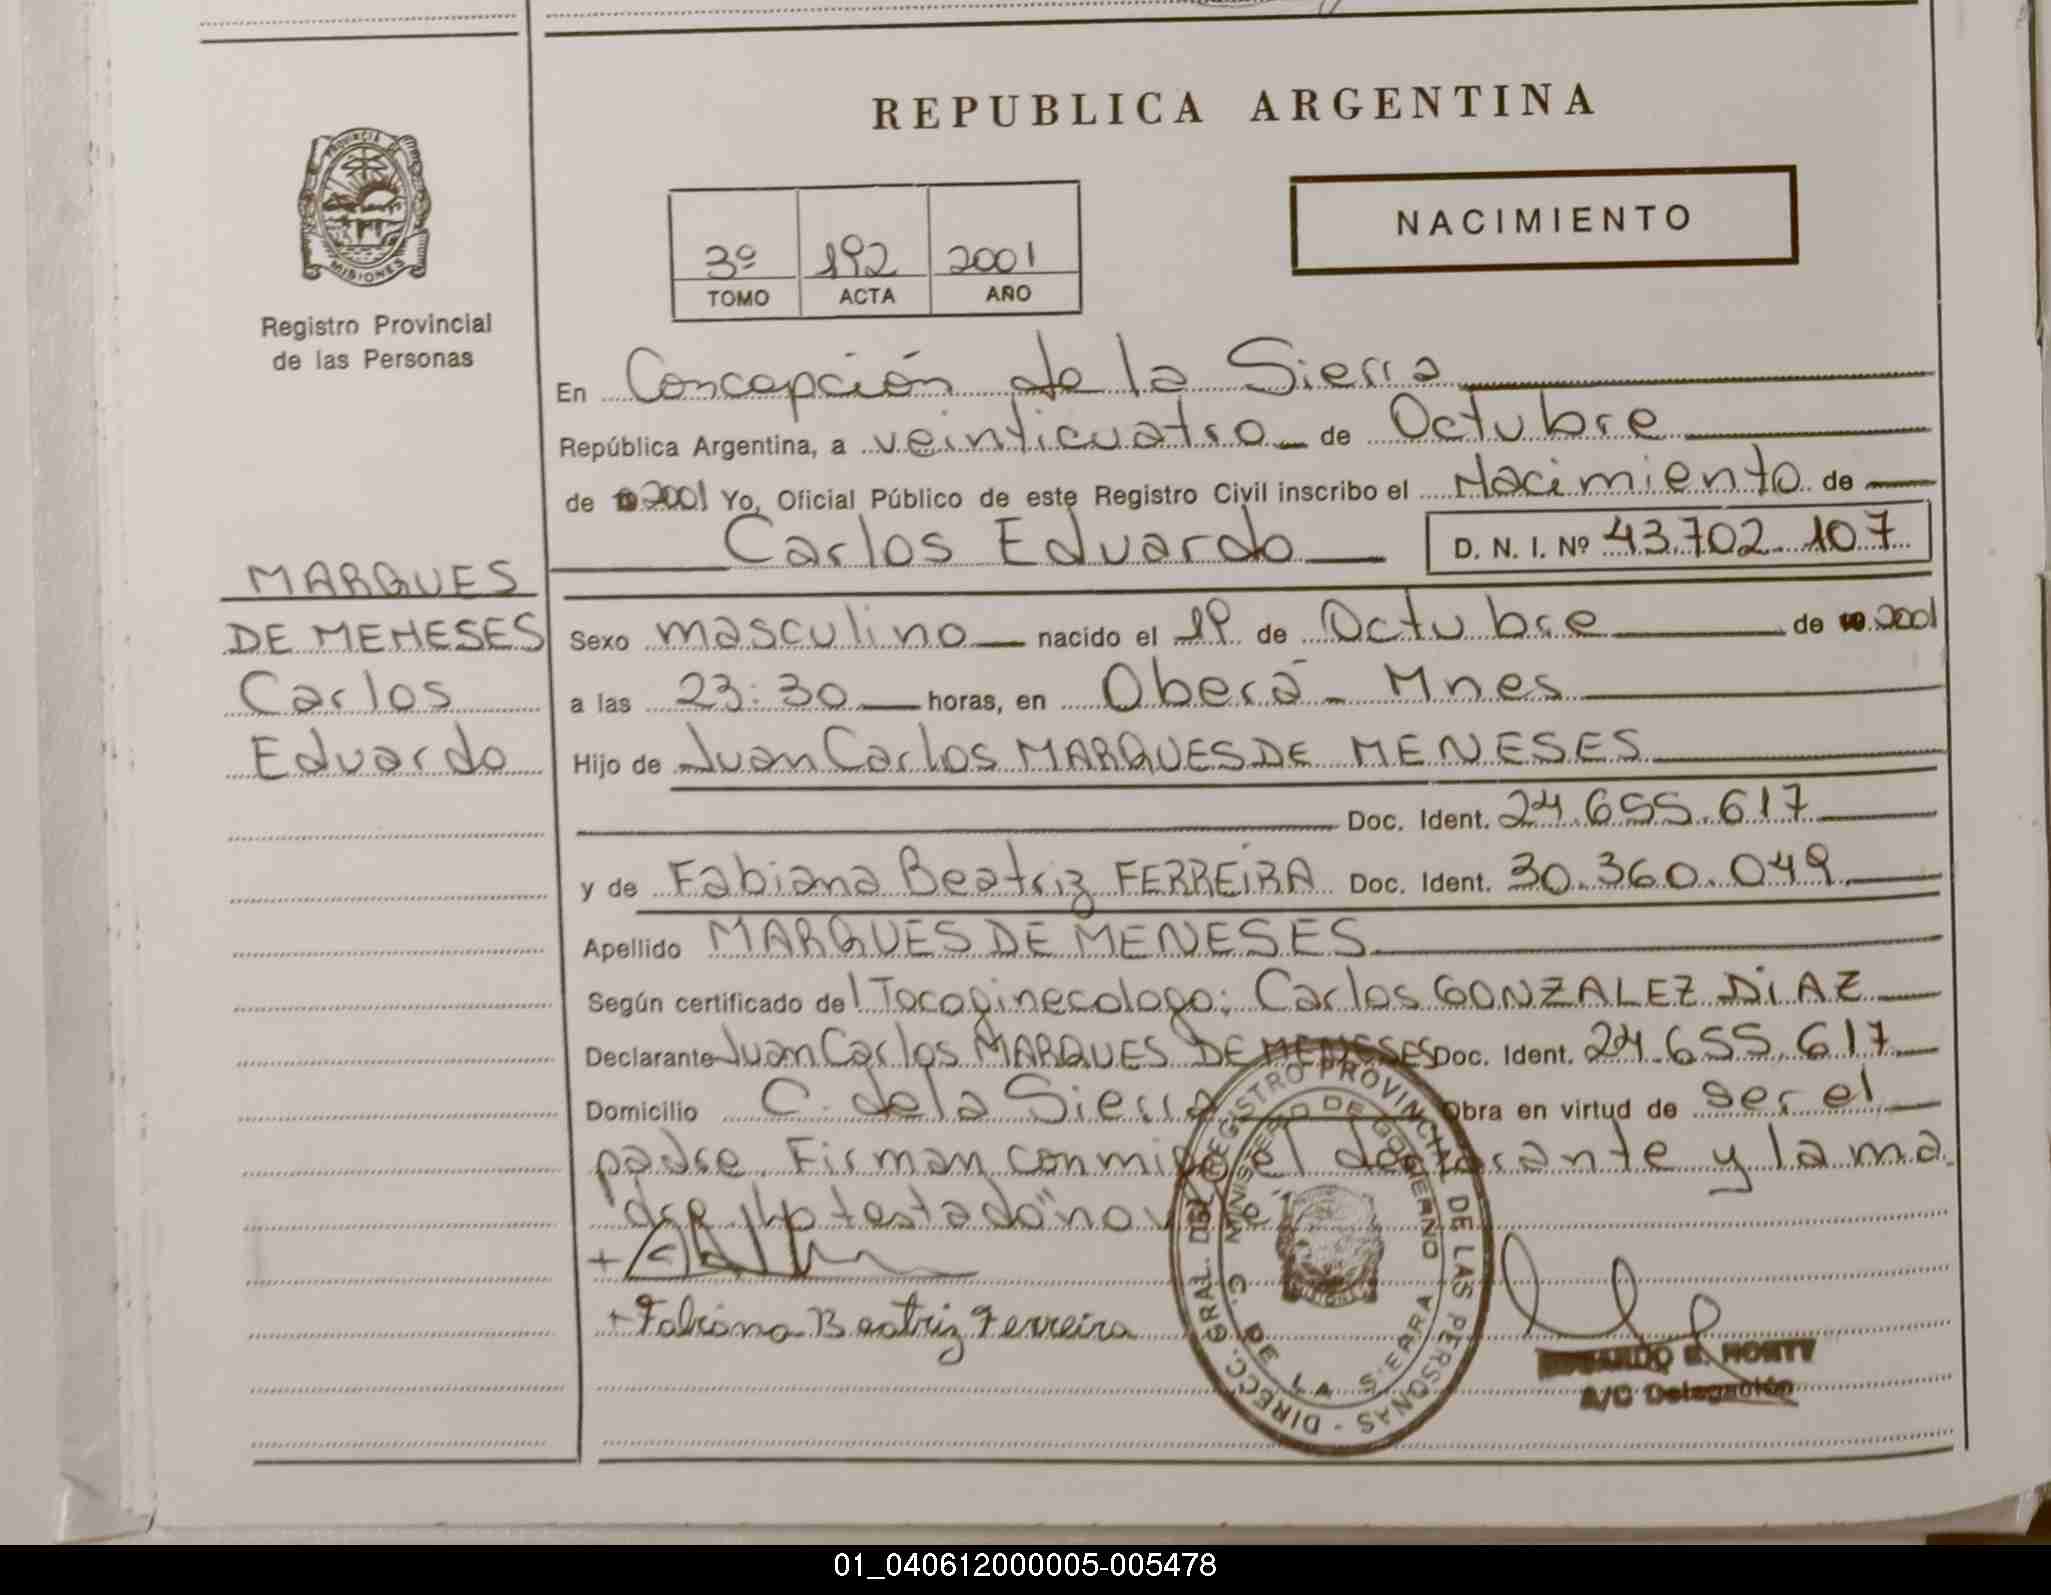 REPUBLICA ARGENTINA
PROVINCIA DE
MISIONES
Registro Provincial
de las Personas
3º 192 2001
TOMO ACTA AÑO
NACIMIENTO
En Concepción de la Sierra
República Argentina, a veinticuatro de Octubre
de 2001 Yo, Oficial Público de este Registro Civil inscribo el Nacimiento de
Carlos Eduardo D. N. I. Nº 43.702.107
MARQUES
DE MENESES
Carlos
Eduardo
Sexo masculino nacido el 1º de Octubre de 2001
a las 23:30 horas, en Oberá - Mnes
Hijo de Juan Carlos MARQUES DE MENESES
Doc. Ident. 24.655.617
y de Fabiana Beatriz FERREIRA Doc. Ident. 30.360.049
Apellido MARQUES DE MENESES
Según certificado del Tocoginecologo: Carlos GONZALEZ DIAZ
Declarante Juan Carlos MARQUES DE MENESES Doc. Ident. 24.655.617
Domicilio C. de la Sierra Obra en virtud de ser el
padre. Firman conmigo el declarante y la ma
dre
+ Fabiana Beatriz Ferreira
DIRECC. GRAL. DEL REGISTRO PROVINCIAL DE LAS PERSONAS
MINISTERIO DE GOBIERNO
C. DE LA SIERRA
MISIONES
A/C Delegación
01_040612000005-005478